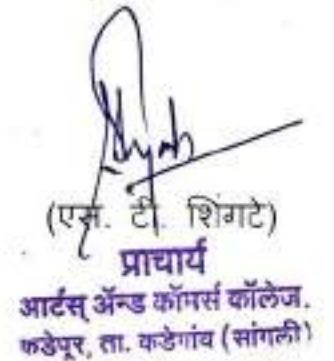 (एस. टी. शिंगटे)
प्राचार्य
आर्टस् ॲन्ड कॉमर्स कॉलेज.
कडेपूर, ता. कडेगांव (सांगली)